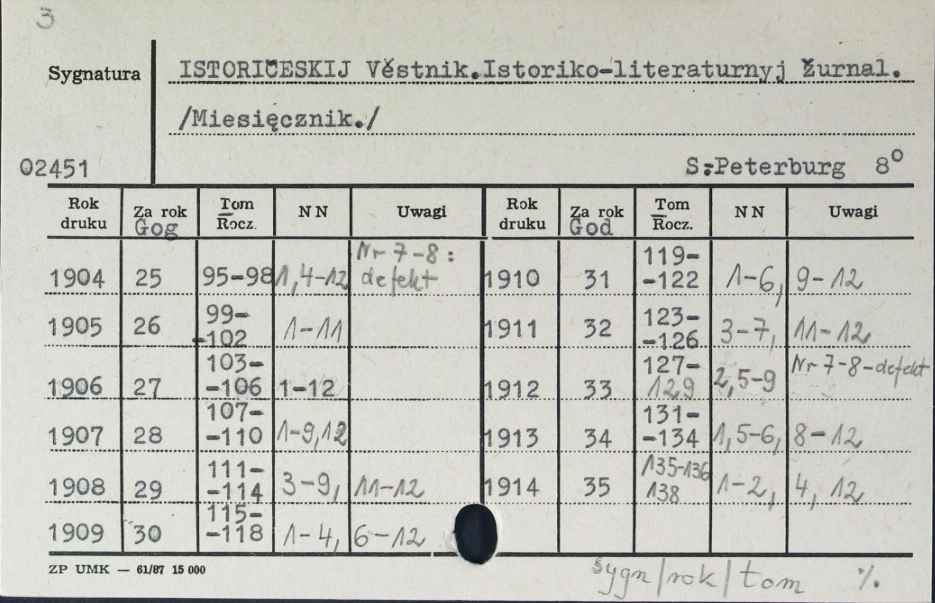 3
Sygnatura ISTORIČESKIJ Věstnik.Istoriko-literaturnyj Žurnal.
/Miesięcznik./
02451 S:Peterburg 8°
Rok druku Za rok Gog Tom Rocz. NN Uwagi Rok druku Za rok God Tom Rocz. NN Uwagi
1904 25 95-98 1,4-12 Nr 7-8: defekt 1910 31 119--122 1-6, 9-12
1905 26 99--102 1-11 1911 32 123--126 3-7, 11-12
1906 27 103--106 1-12 1912 33 127-129 2,5-9 Nr 7-8-defekt
1907 28 107--110 1-9,12 1913 34 131--134 1,5-6, 8-12
1908 29 111--114 3-9, 11-12 1914 35 135-136 138 1-2, 4, 12
1909 30 115--118 1-4, 6-12
ZP UMK — 61/87 15 000
sygn/rok/tom %.